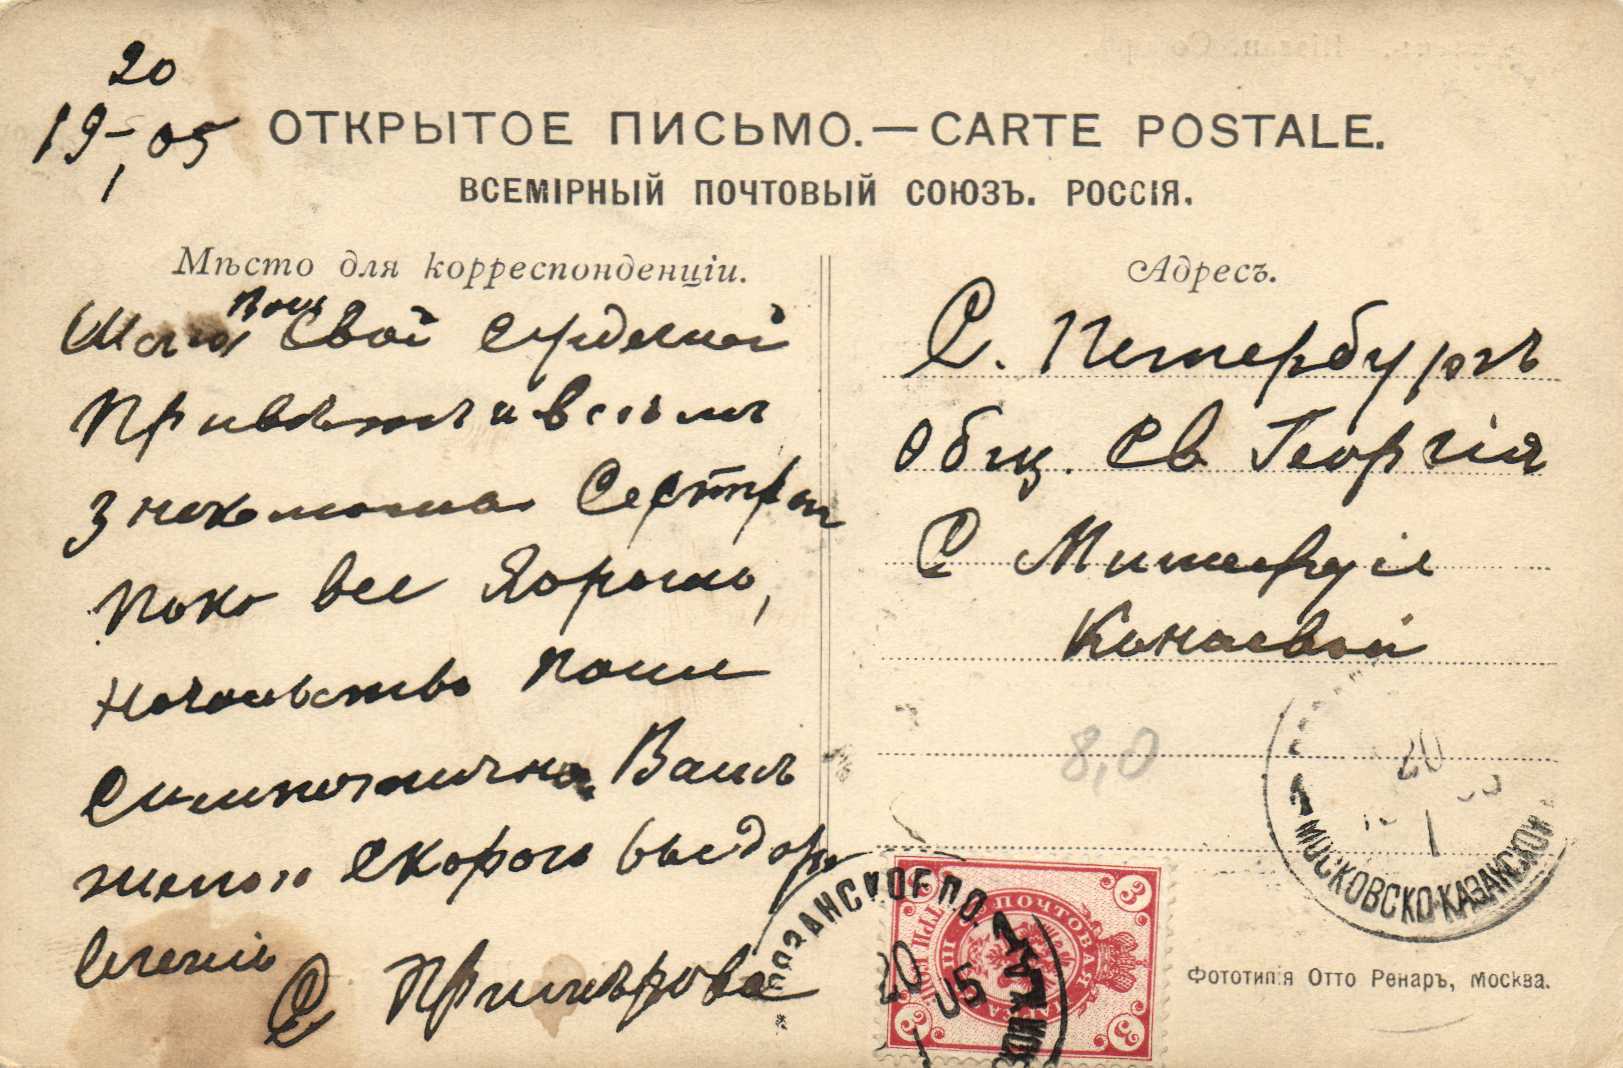 20
19 - 05
1
ОТКРЫТОЕ ПИСЬМО. — CARTE POSTALE.
ВСЕМІРНЫЙ ПОЧТОВЫЙ СОЮЗЪ. РОССІЯ.
Мѣсто для корреспонденціи.
Вамъ
Шлю свой сердечной
Привѣтъ и всѣмъ
знакомымъ Сестрам
Пока все хорошо,
начальство наше
симпатично. Вамъ
желаю скораго выздоро
вленія
С Примѣрова
Адресъ.
С. Петербургъ
Общ. Св Георгія
С
Конаевой
8,0
20
1
1 МОСКОВСКО-КАЗАНСКОЙ
КАЗАНСКОЕ П.О. 1
20
05
3
3
3
3
ПОЧТОВАЯ МАРКА
ТРИ КОП
Фототипія Отто Ренаръ, Москва.